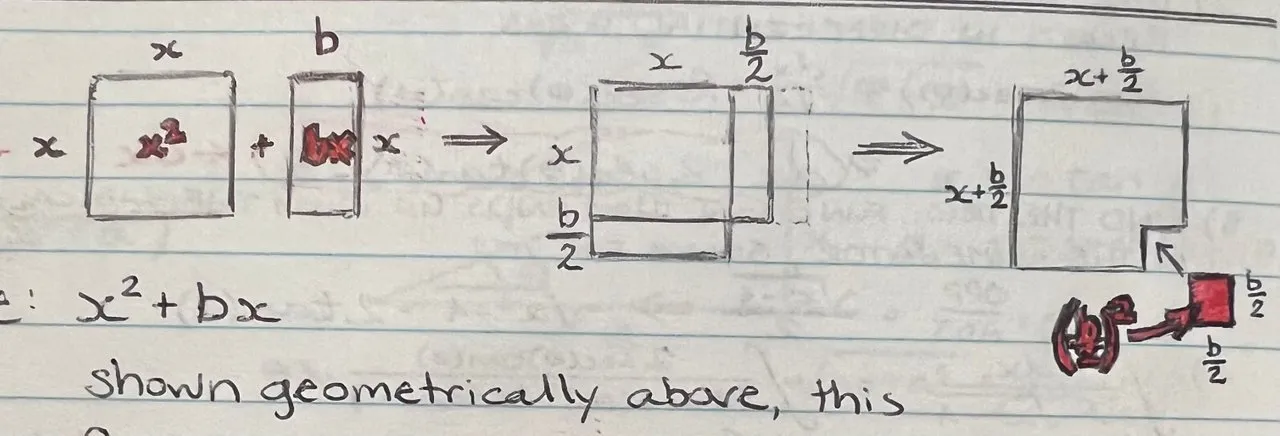 x b
x x² + bx x ⇒
x b/2
x
b/2
⇒
x + b/2
x + b/2
(b/2)² b/2
b/2
e: x² + bx
shown geometrically above, this